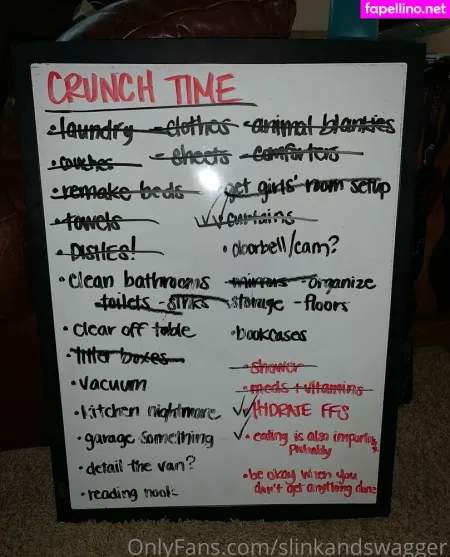 fapellino.net
CRUNCH TIME
• laundry - clothes - animal blankies
• couches - sheets - comforters
• remake beds
get girls' room setup
• towels
curtains
• DISHES!
• doorbell/cam?
• clean bathrooms
mirrors - organize
toilets - sinks
storage - floors
• clear off table
• bookcases
• litter boxes
- shower
• vacuum
- meds + vitamins
• kitchen nightmare
HYDRATE FFS
• garage something
• eating is also important
probably
• detail the van?
• be okay when you
don't get anything done
• reading nook
OnlyFans.com/slinkandswagger